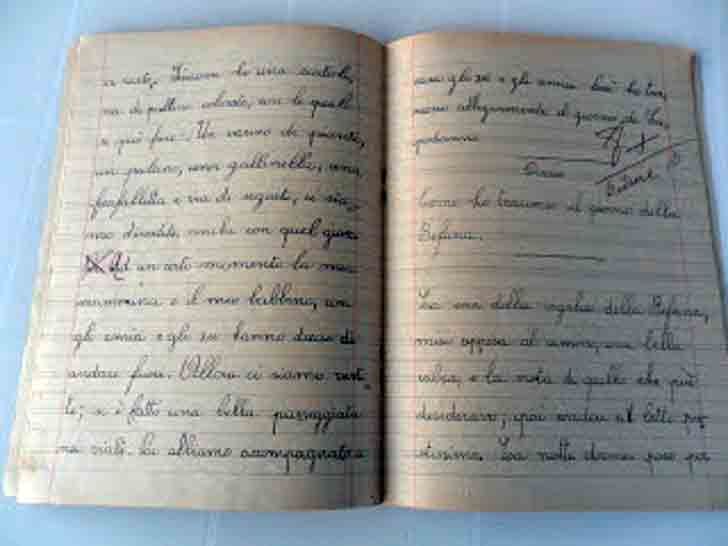 e certo, Simone ha una scatoli,
na di palline colorate, con le quali
si può fare. Un vasino da
un pulcino, una gallinella, una
farfallina e via di seguito, ci sia,
mo divertiti, anche con quel gioco.
Ad un certo momento la mia
mammina e il mio babbino, con
gli amici e gli zii hanno deciso di
andare fuori. Allora ci siamo vesti
ti; si è fatto una bella passeggiata
su viali. Li abbiamo accompagnati a
casa gli zii e gli amici. Così ho tra,
scorso allegramente il giorno di Ca,
podanno.
8+
Come ho trascorso il giorno della
Befana.
La sera della vigilia della Befana,
misi appesa al camino, una bella
calza, e la nota di quello che più
desideravo; poi andai a letto pre
stissimo. La notte dormii poco per